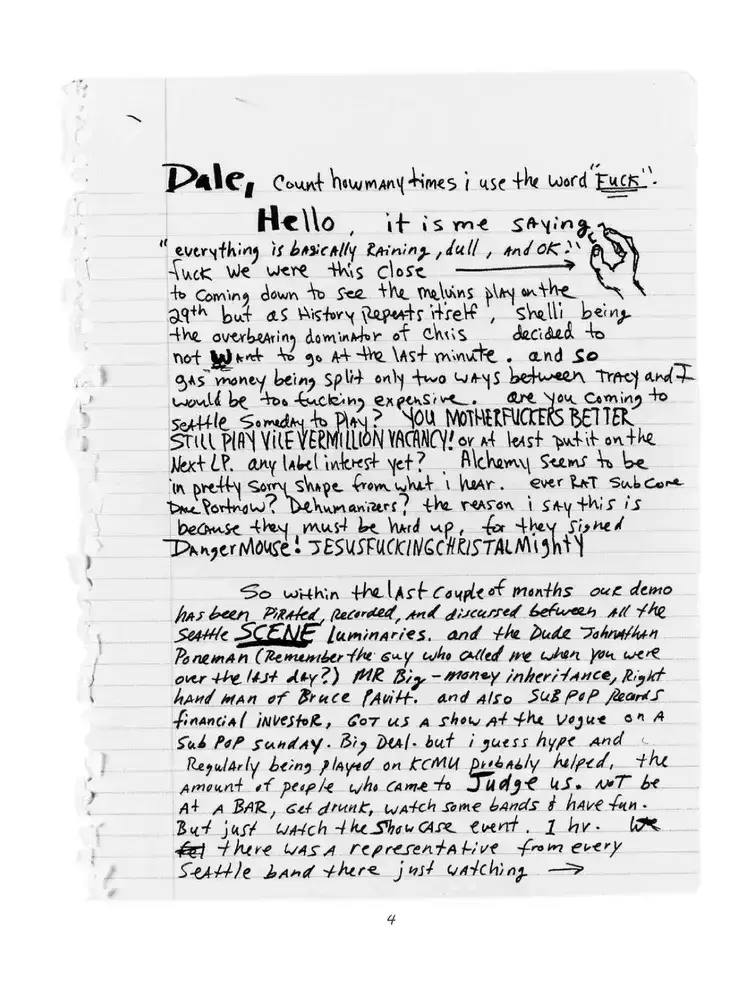 Dale, Count howmany times i use the word "Fuck".
Hello, it is me sAying
"everything is bAsicAlly RAining, dull, And OK!"
fuck We were this close
to coming down to see the melvins plAy on the
29th but as History Repeats itself, Shelli being
the overbeAring dominAtor of Chris decided to
not WAnt to go At the lAst minute. and so
gAs money being split only two wAys between TrAcy and I
would be too fucking expensive. are you coming to
seAttle SomedAy to PlAy? YOU MOTHERFUCKERS BETTER
STILL PlAY VilE VERMILLION VACANCY! or At least put it on the
Next LP. any lAbel interest yet? Alchemy seems to be
in pretty sorry shape from what i heAr. ever RAT Subcore
DAve Portnow? Dehumanizers? the reason i say this is
because they must be hArd up, for they signed
DAngerMouse! JESUSFUCKINGCHRISTALMighty
So within the lAst couple of months our demo
hAs been PiRAted, Recorded, And discussed between All the
SeAttle SCENE luminAries. and the Dude Johnathan
Poneman (Remember the guy who cAlled me when you were
over the lAst dAy?) MR Big-money inheritAnce, Right
hAnd mAn of Bruce PAvitt. and Also SUB POP Records
financial investor, Got us A show At the Vogue on A
Sub Pop Sunday. Big DeAl. but i guess hype And
RegulArly being plAyed on KCMU probAbly helped, the
Amount of people who cAme to Judge us. NOT be
At A BAR, Get drunk, WAtch some bAnds & hAve fun.
But just WAtch the ShowCAse event. 1 hr.
there WAS A representAtive from every
SeAttle bAnd there just wAtching →
4